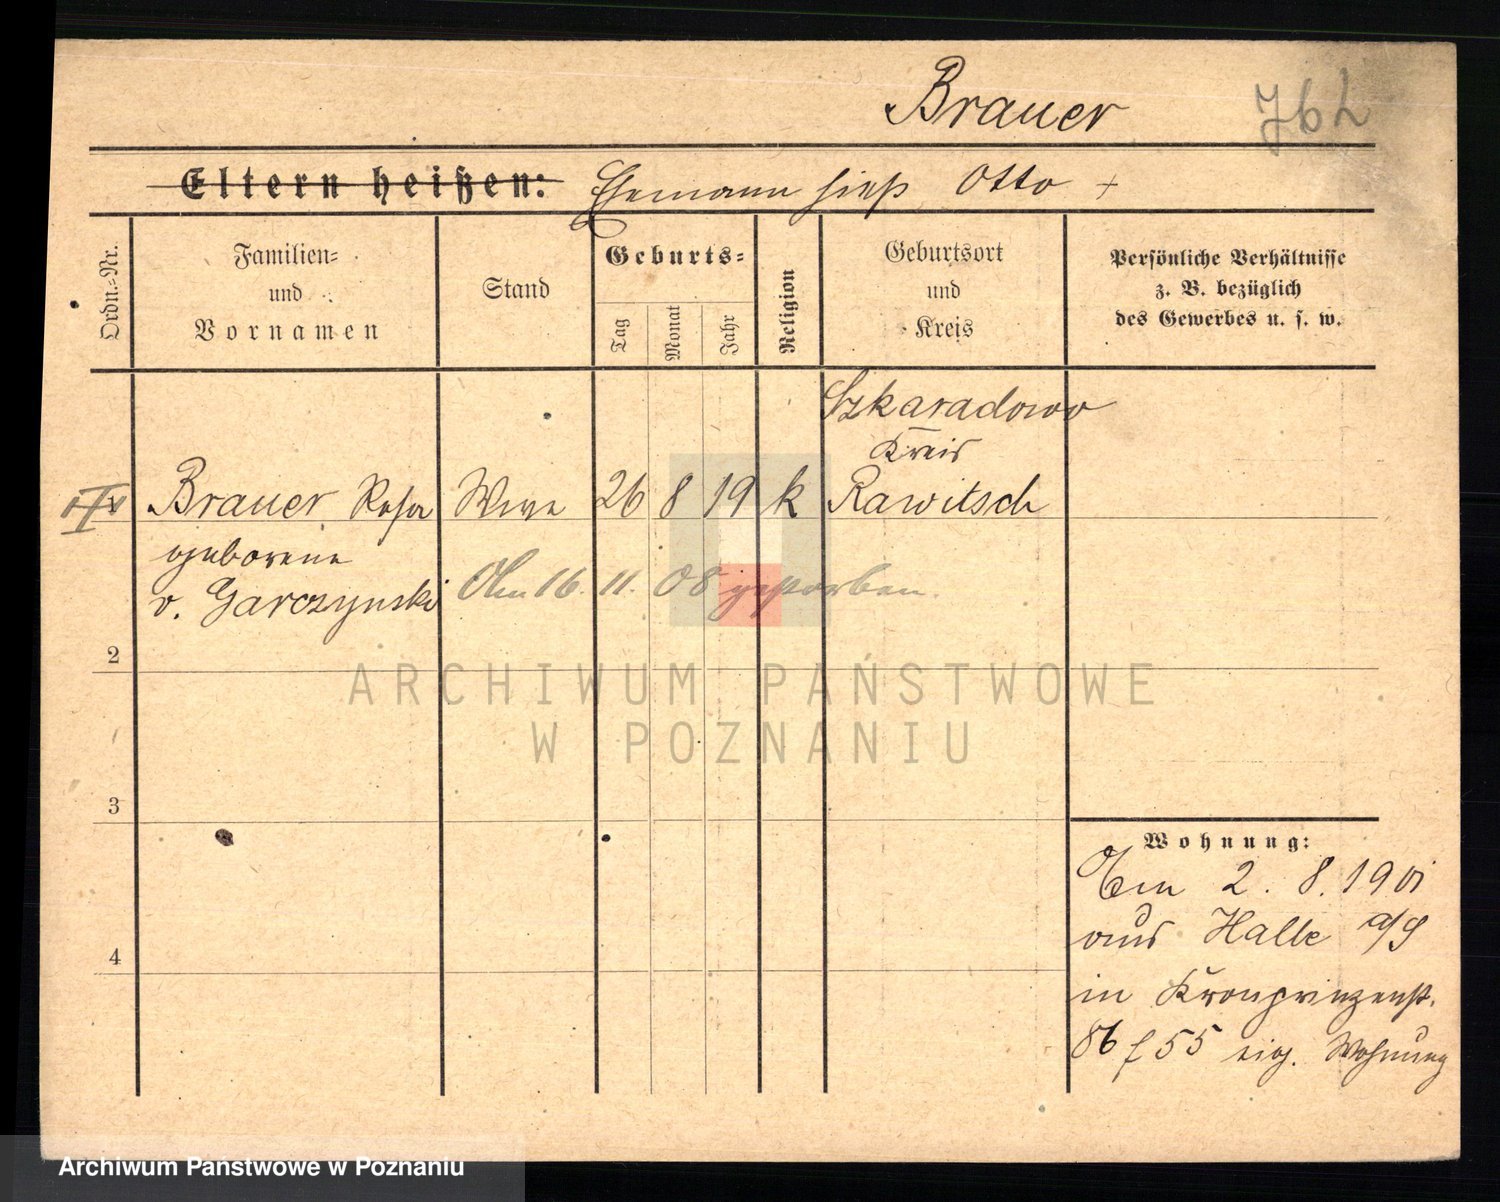 Brauer
Eltern heißen: Ehemann hieß Otto +
Ordn.-Nr.
Familien-
und
Vornamen
Stand
Geburts-
Tag
Monat
Jahr
Religion
Geburtsort
und
Kreis
Persönliche Verhältnisse
z. B. bezüglich
des Gewerbes u. s. w.
Szkaradowo
Kreis
Brauer Rosa Wwe 26 8 19 k Rawitsch
geborene
v. Garczynski
Am 16. 11. 08 gestorben.
2
3
4
Wohnung:
Am 2. 8. 1901
aus Halle a/S
in Kronprinzenst.
86 / 55 eig. Wohnung
ARCHIWUM PAŃSTWOWE
W POZNANIU
Archiwum Państwowe w Poznaniu